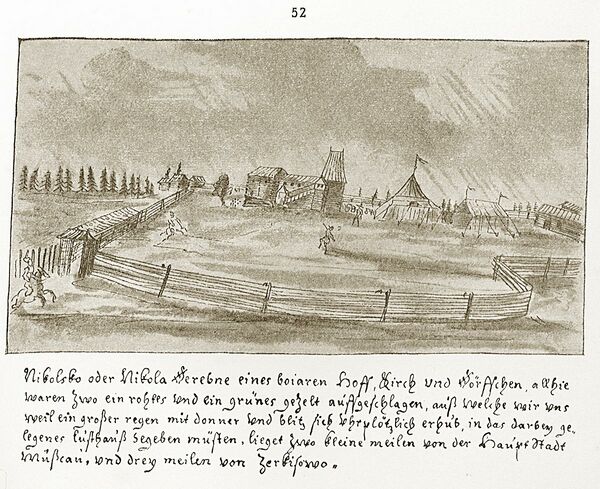 52
Nikolsko oder Nikola Derebne eines boiaren Hoff, Kirch vnd Dörffchen, allhie
waren zwo ein rohtes vnd ein grünes gezelt auffgeschlagen, auß welche wir vns
weil ein großer regen mit donner vnd blitz sich vhrplötzlich erhub, in das darbey ge-
legenes lusthauß begeben müsten, lieget zwo kleine meilen von der Haupt Stadt
Mußcau, vnd drey meilen von Zerkisowo.